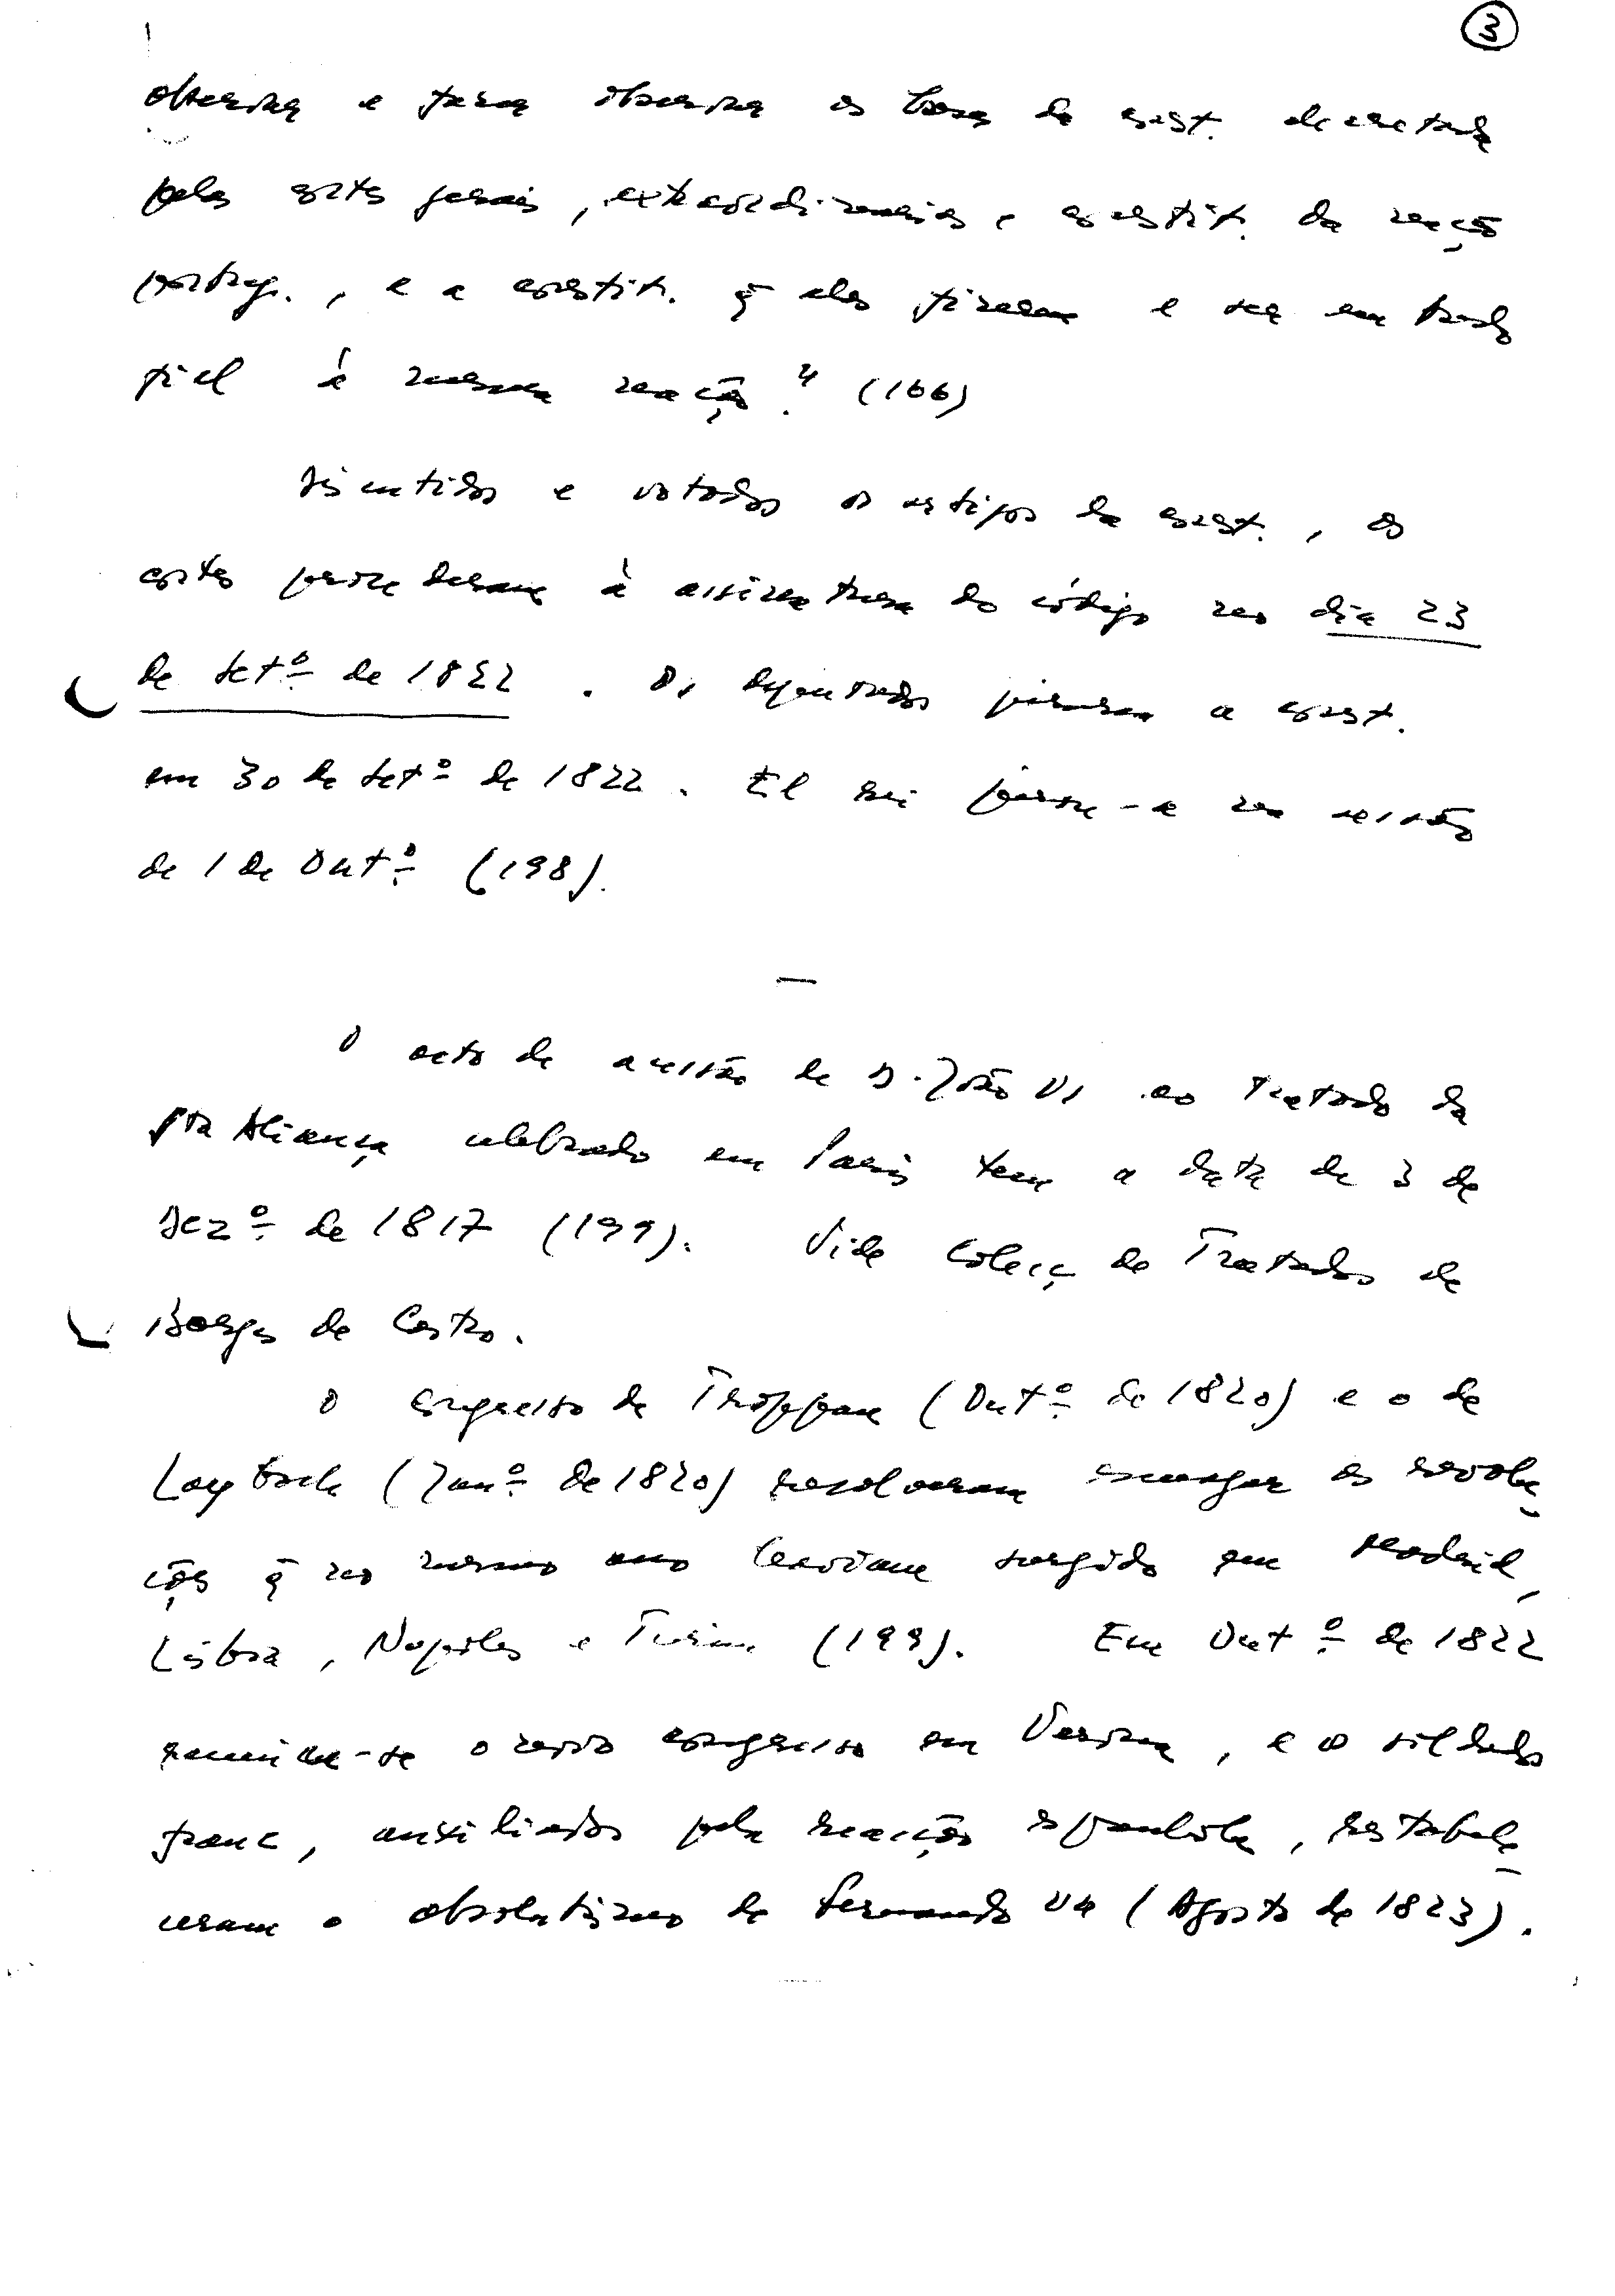 3
observar e fazer observar as bases da const. decretada
pelas cortes gerais, extraordinarias e constit. da nação
portug., e a constit. q̃ elas fizerem e ser em tudo
fiel à mesma nação." (166)
Discutidos e votados os artigos da const., as
cortes procederam à assinatura do código no dia 23
de Setº de 1822. Os deputados juraram a const.
em 30 de Setº de 1822. El rei jurou-a na sessão
de 1 de Outº (198).
O acto de acessão de D. João VI ao Tratado da
Sta Aliança celebrado em Paris tem a data de 3 de
Dezº de 1817 (199). Vide Colecç de Tratados de
Borges de Castro.
O congresso de Troppau (Outº de 1820) e o de
Laybach (Janº de 1820) resolveram esmagar as revolu
ções q̃ no mesmo ano haviam surgido em Madrid,
Lisboa, Napoles e Turim (199). Em Outº de 1822
reuniu-se o novo congresso em Verona, e os soldados
franc, auxiliados pela reacção espanhola, restabele
ceram o absolutismo de Fernando VII (Agosto de 1823).